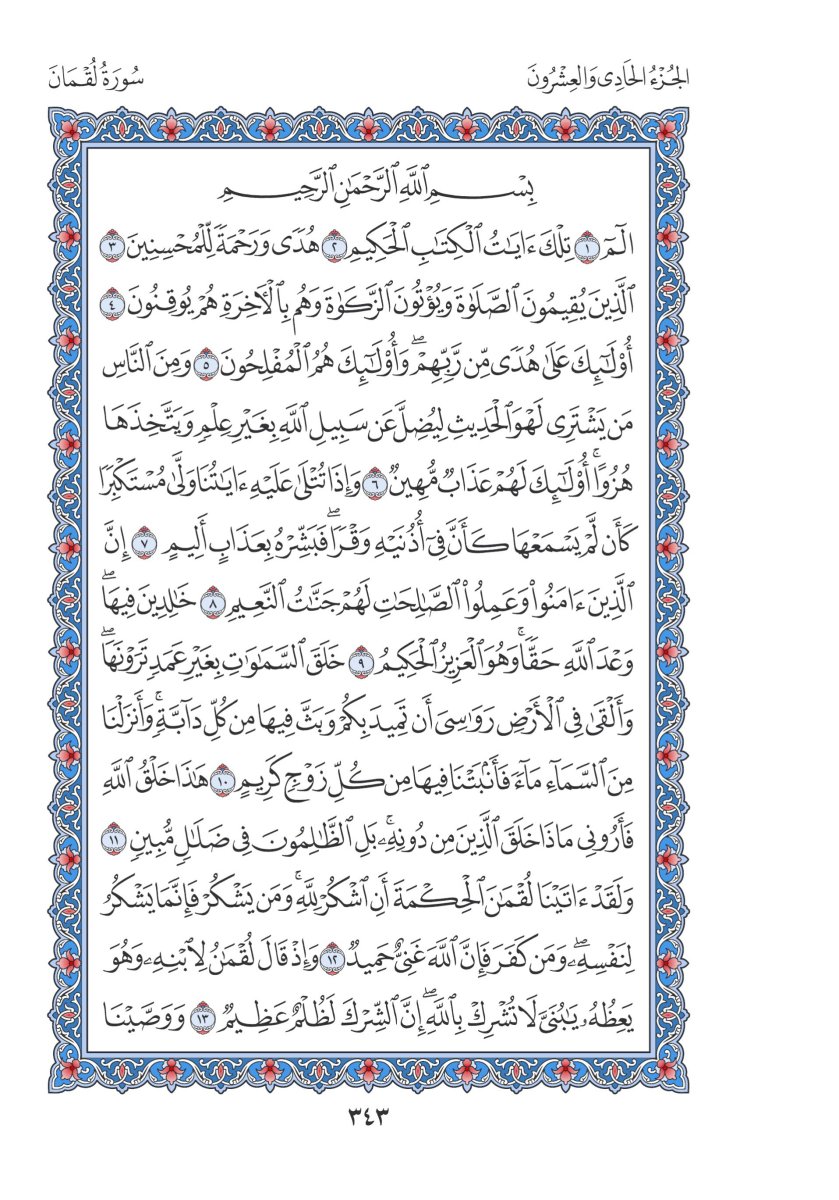 الجُزْءُ الحَادِى وَالعِشْرُونَ
سُورَةُ لُقْمَانَ
بِسْمِ ٱللَّهِ ٱلرَّحْمَٰنِ ٱلرَّحِيمِ
الٓمٓ ١ تِلْكَ ءَايَٰتُ ٱلْكِتَٰبِ ٱلْحَكِيمِ ٢ هُدًى وَرَحْمَةً لِّلْمُحْسِنِينَ ٣
ٱلَّذِينَ يُقِيمُونَ ٱلصَّلَوٰةَ وَيُؤْتُونَ ٱلزَّكَوٰةَ وَهُم بِٱلْأٓخِرَةِ هُمْ يُوقِنُونَ ٤
أُوْلَٰٓئِكَ عَلَىٰ هُدًى مِّن رَّبِّهِمْۖ وَأُوْلَٰٓئِكَ هُمُ ٱلْمُفْلِحُونَ ٥ وَمِنَ ٱلنَّاسِ
مَن يَشْتَرِى لَهْوَ ٱلْحَدِيثِ لِيُضِلَّ عَن سَبِيلِ ٱللَّهِ بِغَيْرِ عِلْمٍ وَيَتَّخِذَهَا
هُزُوًاۚ أُوْلَٰٓئِكَ لَهُمْ عَذَابٌ مُّهِينٌ ٦ وَإِذَا تُتْلَىٰ عَلَيْهِ ءَايَٰتُنَا وَلَّىٰ مُسْتَكْبِرًا
كَأَن لَّمْ يَسْمَعْهَا كَأَنَّ فِىٓ أُذُنَيْهِ وَقْرًاۖ فَبَشِّرْهُ بِعَذَابٍ أَلِيمٍ ٧ إِنَّ
ٱلَّذِينَ ءَامَنُواْ وَعَمِلُواْ ٱلصَّٰلِحَٰتِ لَهُمْ جَنَّٰتُ ٱلنَّعِيمِ ٨ خَٰلِدِينَ فِيهَاۖ
وَعْدَ ٱللَّهِ حَقًّاۚ وَهُوَ ٱلْعَزِيزُ ٱلْحَكِيمُ ٩ خَلَقَ ٱلسَّمَٰوَٰتِ بِغَيْرِ عَمَدٍ تَرَوْنَهَاۖ
وَأَلْقَىٰ فِى ٱلْأَرْضِ رَوَٰسِىَ أَن تَمِيدَ بِكُمْ وَبَثَّ فِيهَا مِن كُلِّ دَآبَّةٍۚ وَأَنزَلْنَا
مِنَ ٱلسَّمَآءِ مَآءً فَأَنۢبَتْنَا فِيهَا مِن كُلِّ زَوْجٍ كَرِيمٍ ١٠ هَٰذَا خَلْقُ ٱللَّهِ
فَأَرُونِى مَاذَا خَلَقَ ٱلَّذِينَ مِن دُونِهِۦۚ بَلِ ٱلظَّٰلِمُونَ فِى ضَلَٰلٍ مُّبِينٍ ١١
وَلَقَدْ ءَاتَيْنَا لُقْمَٰنَ ٱلْحِكْمَةَ أَنِ ٱشْكُرْ لِلَّهِۚ وَمَن يَشْكُرْ فَإِنَّمَا يَشْكُرُ
لِنَفْسِهِۦۖ وَمَن كَفَرَ فَإِنَّ ٱللَّهَ غَنِىٌّ حَمِيدٌ ١٢ وَإِذْ قَالَ لُقْمَٰنُ لِٱبْنِهِۦ وَهُوَ
يَعِظُهُۥ يَٰبُنَىَّ لَا تُشْرِكْ بِٱللَّهِۖ إِنَّ ٱلشِّرْكَ لَظُلْمٌ عَظِيمٌ ١٣ وَوَصَّيْنَا
٣٤٣